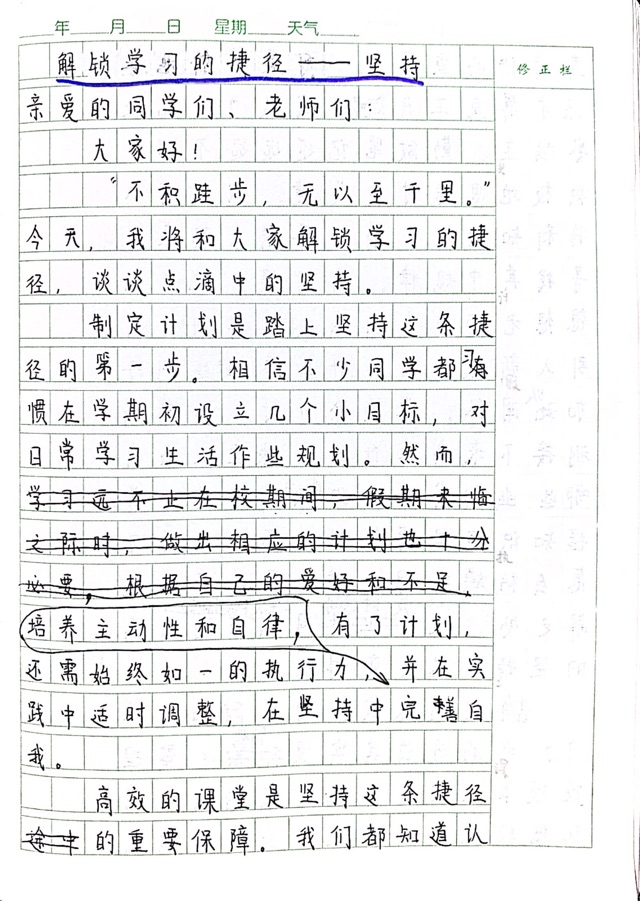 年 月 日 星期 天气
修正栏
解锁学习的捷径——坚持
亲爱的同学们、老师们：
大家好！
“不积跬步，无以至千里。”
今天，我将和大家解锁学习的捷
径，谈谈点滴中的坚持。
制定计划是踏上坚持这条捷
径的第一步。相信不少同学都习
惯在学期初设立几个小目标，对
日常学习生活作些规划。然而，
学习远不止在校期间，假期来临
之际时，做出相应的计划也十分
必要，根据自己的爱好和不足，
培养主动性和自律，有了计划，
还需始终如一的执行力，并在实
践中适时调整，在坚持中完善自
我。
高效的课堂是坚持这条捷径
途中的重要保障。我们都知道认